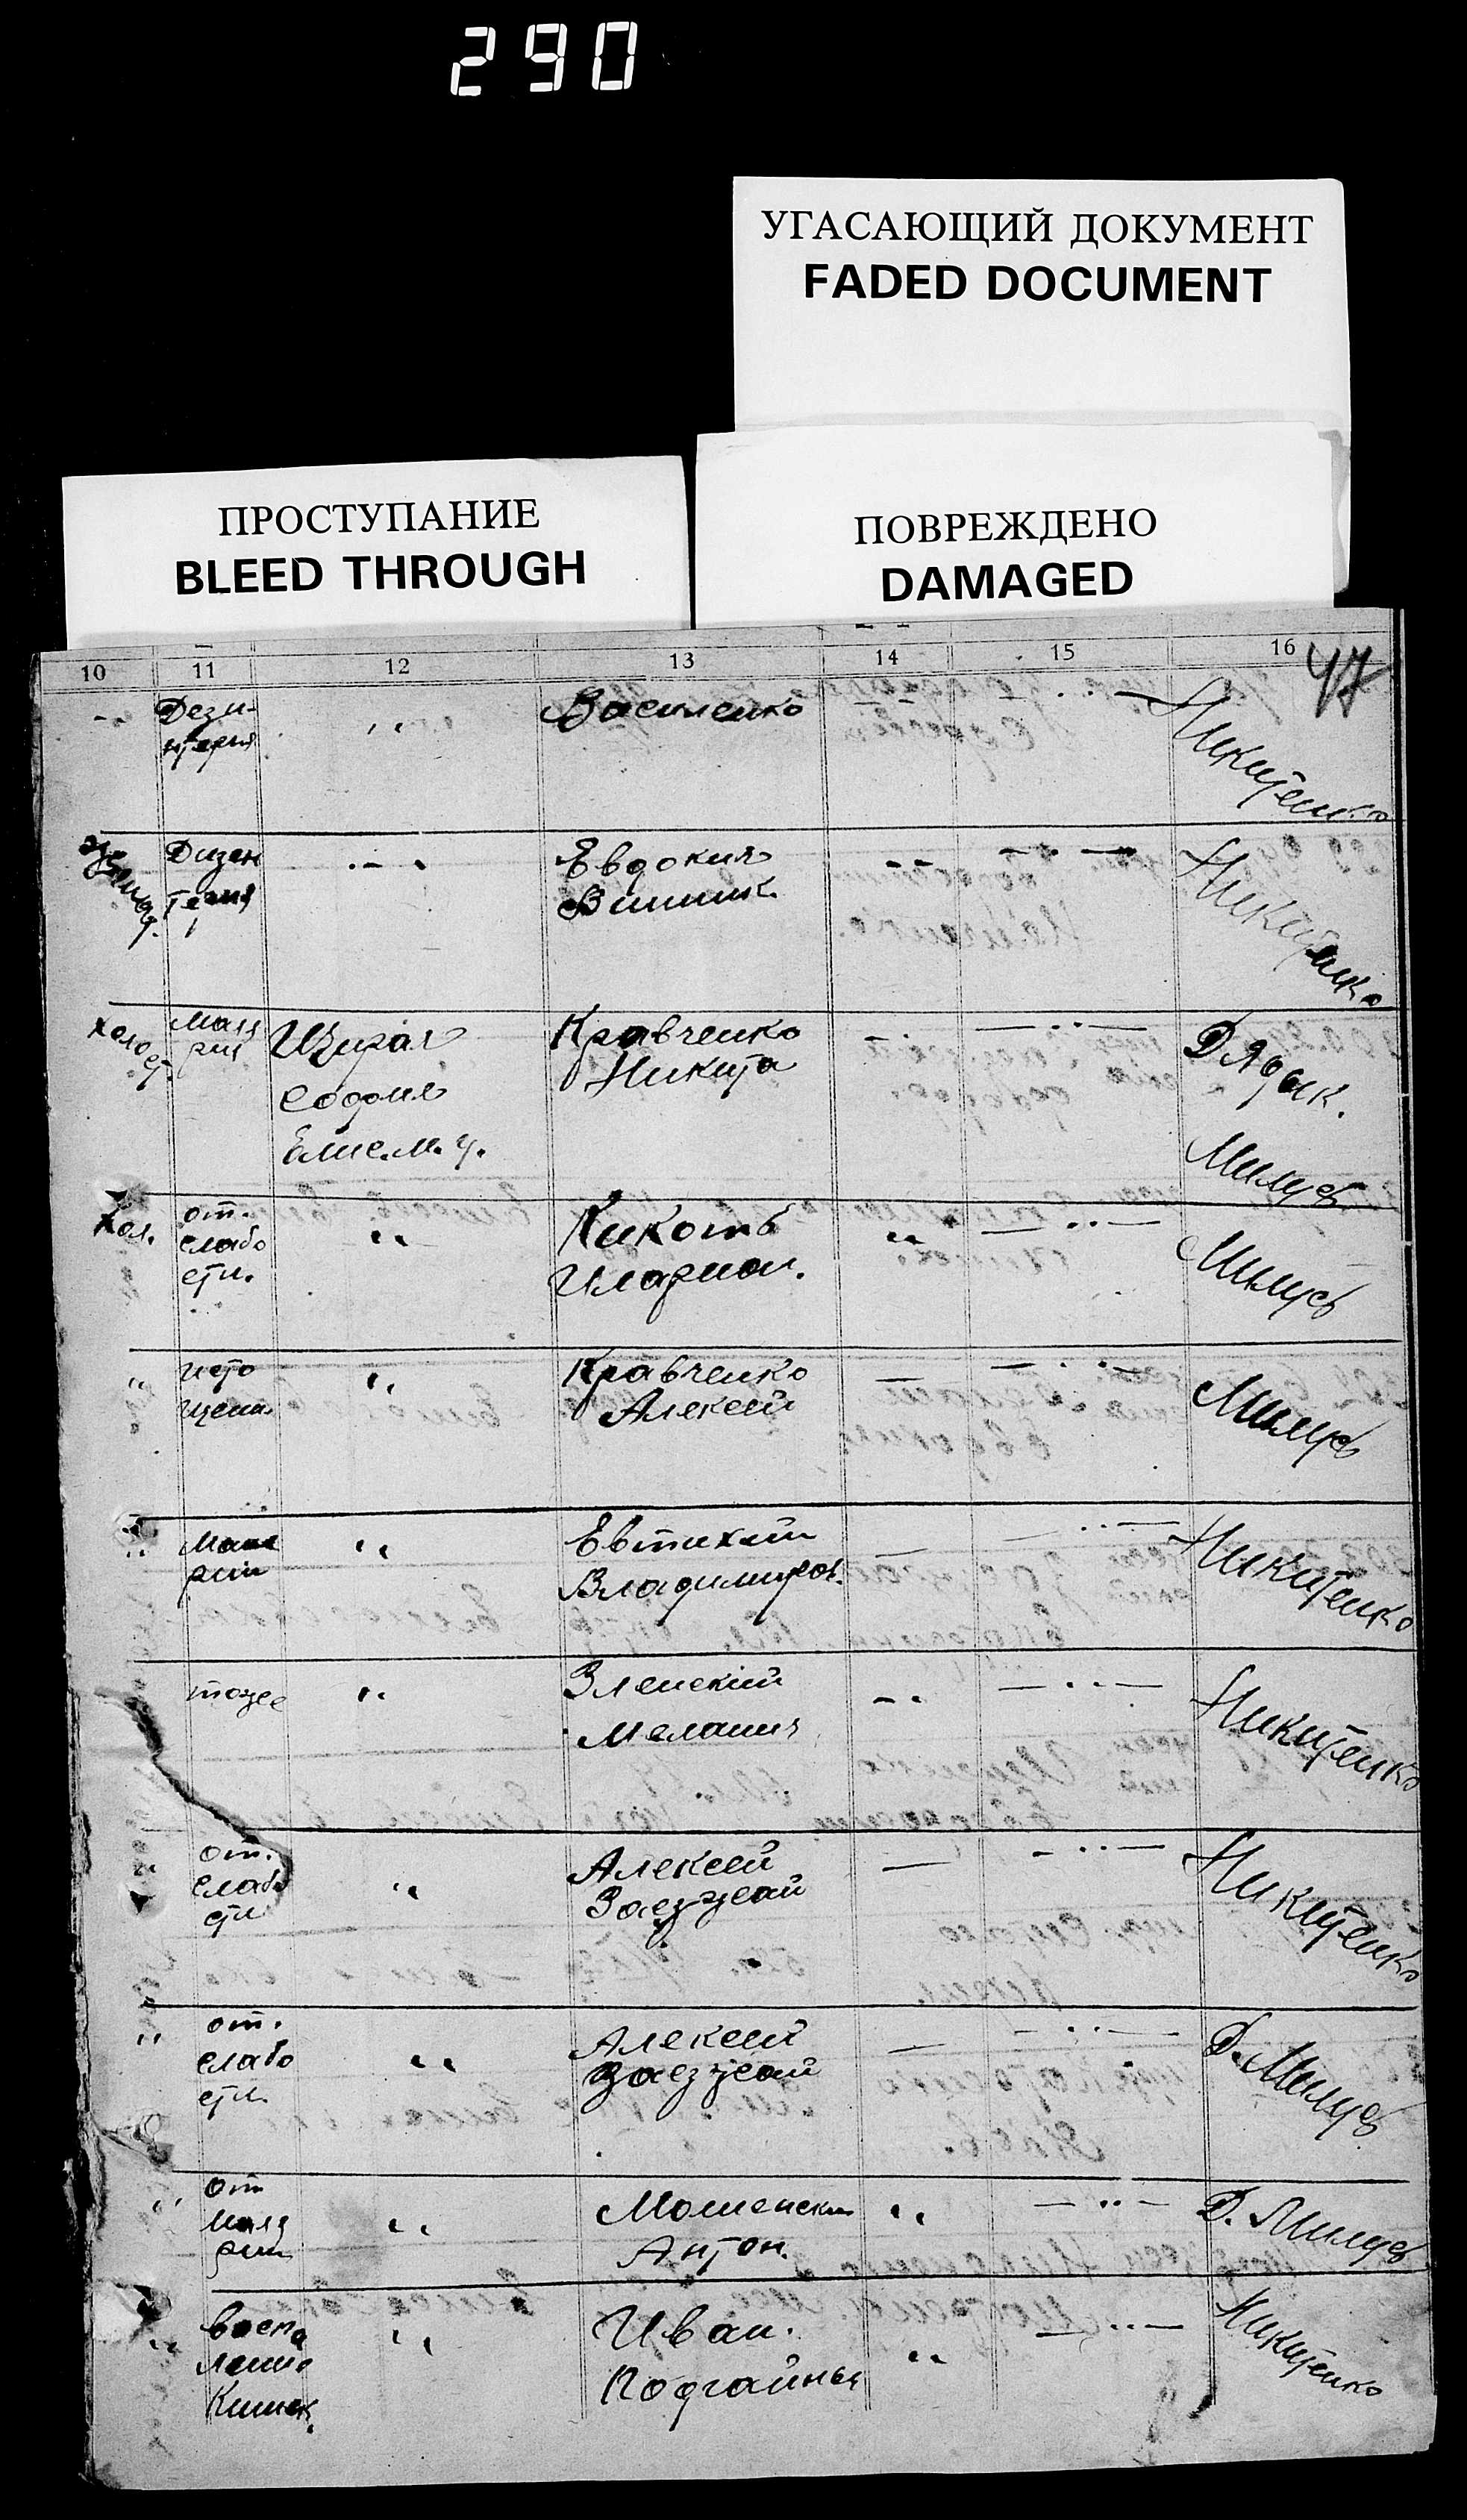 290
УГАСАЮЩИЙ ДОКУМЕНТ
FADED DOCUMENT
ПРОСТУПАНИЕ
BLEED THROUGH
ПОВРЕЖДЕНО
DAMAGED
10 11 12 13 14 15 16
47
Дези-
нтерия
Василенко
Никитенко
Дизен
терия
Евдокия
Винник
Никитенко
Холо
ст.
Маля
рия
Кравченко
Никита
Дядык.
Милуев
Хол.
от.
слабо
сти.
Кикоть
Иларион.
Милуев
исто
щения
Кравченко
Алексей
Милуев
Маля
рии
Евтихий
Владимиров.
Никитенко
тоже
Зленский
Мелания
Никитенко
от.
слабо
сти
Алексей
Заезжай
Никитенко
от.
слабо
сти.
Алексей
Заезжай
Д. Милуев
от
маля
рии
Антон.
Д. Милуев
воспа
ление
Кишек.
Иван.
Подгайный
Никитенко